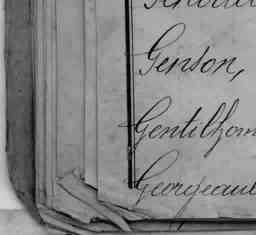 Genson,
Gentilhom
Georgeaul